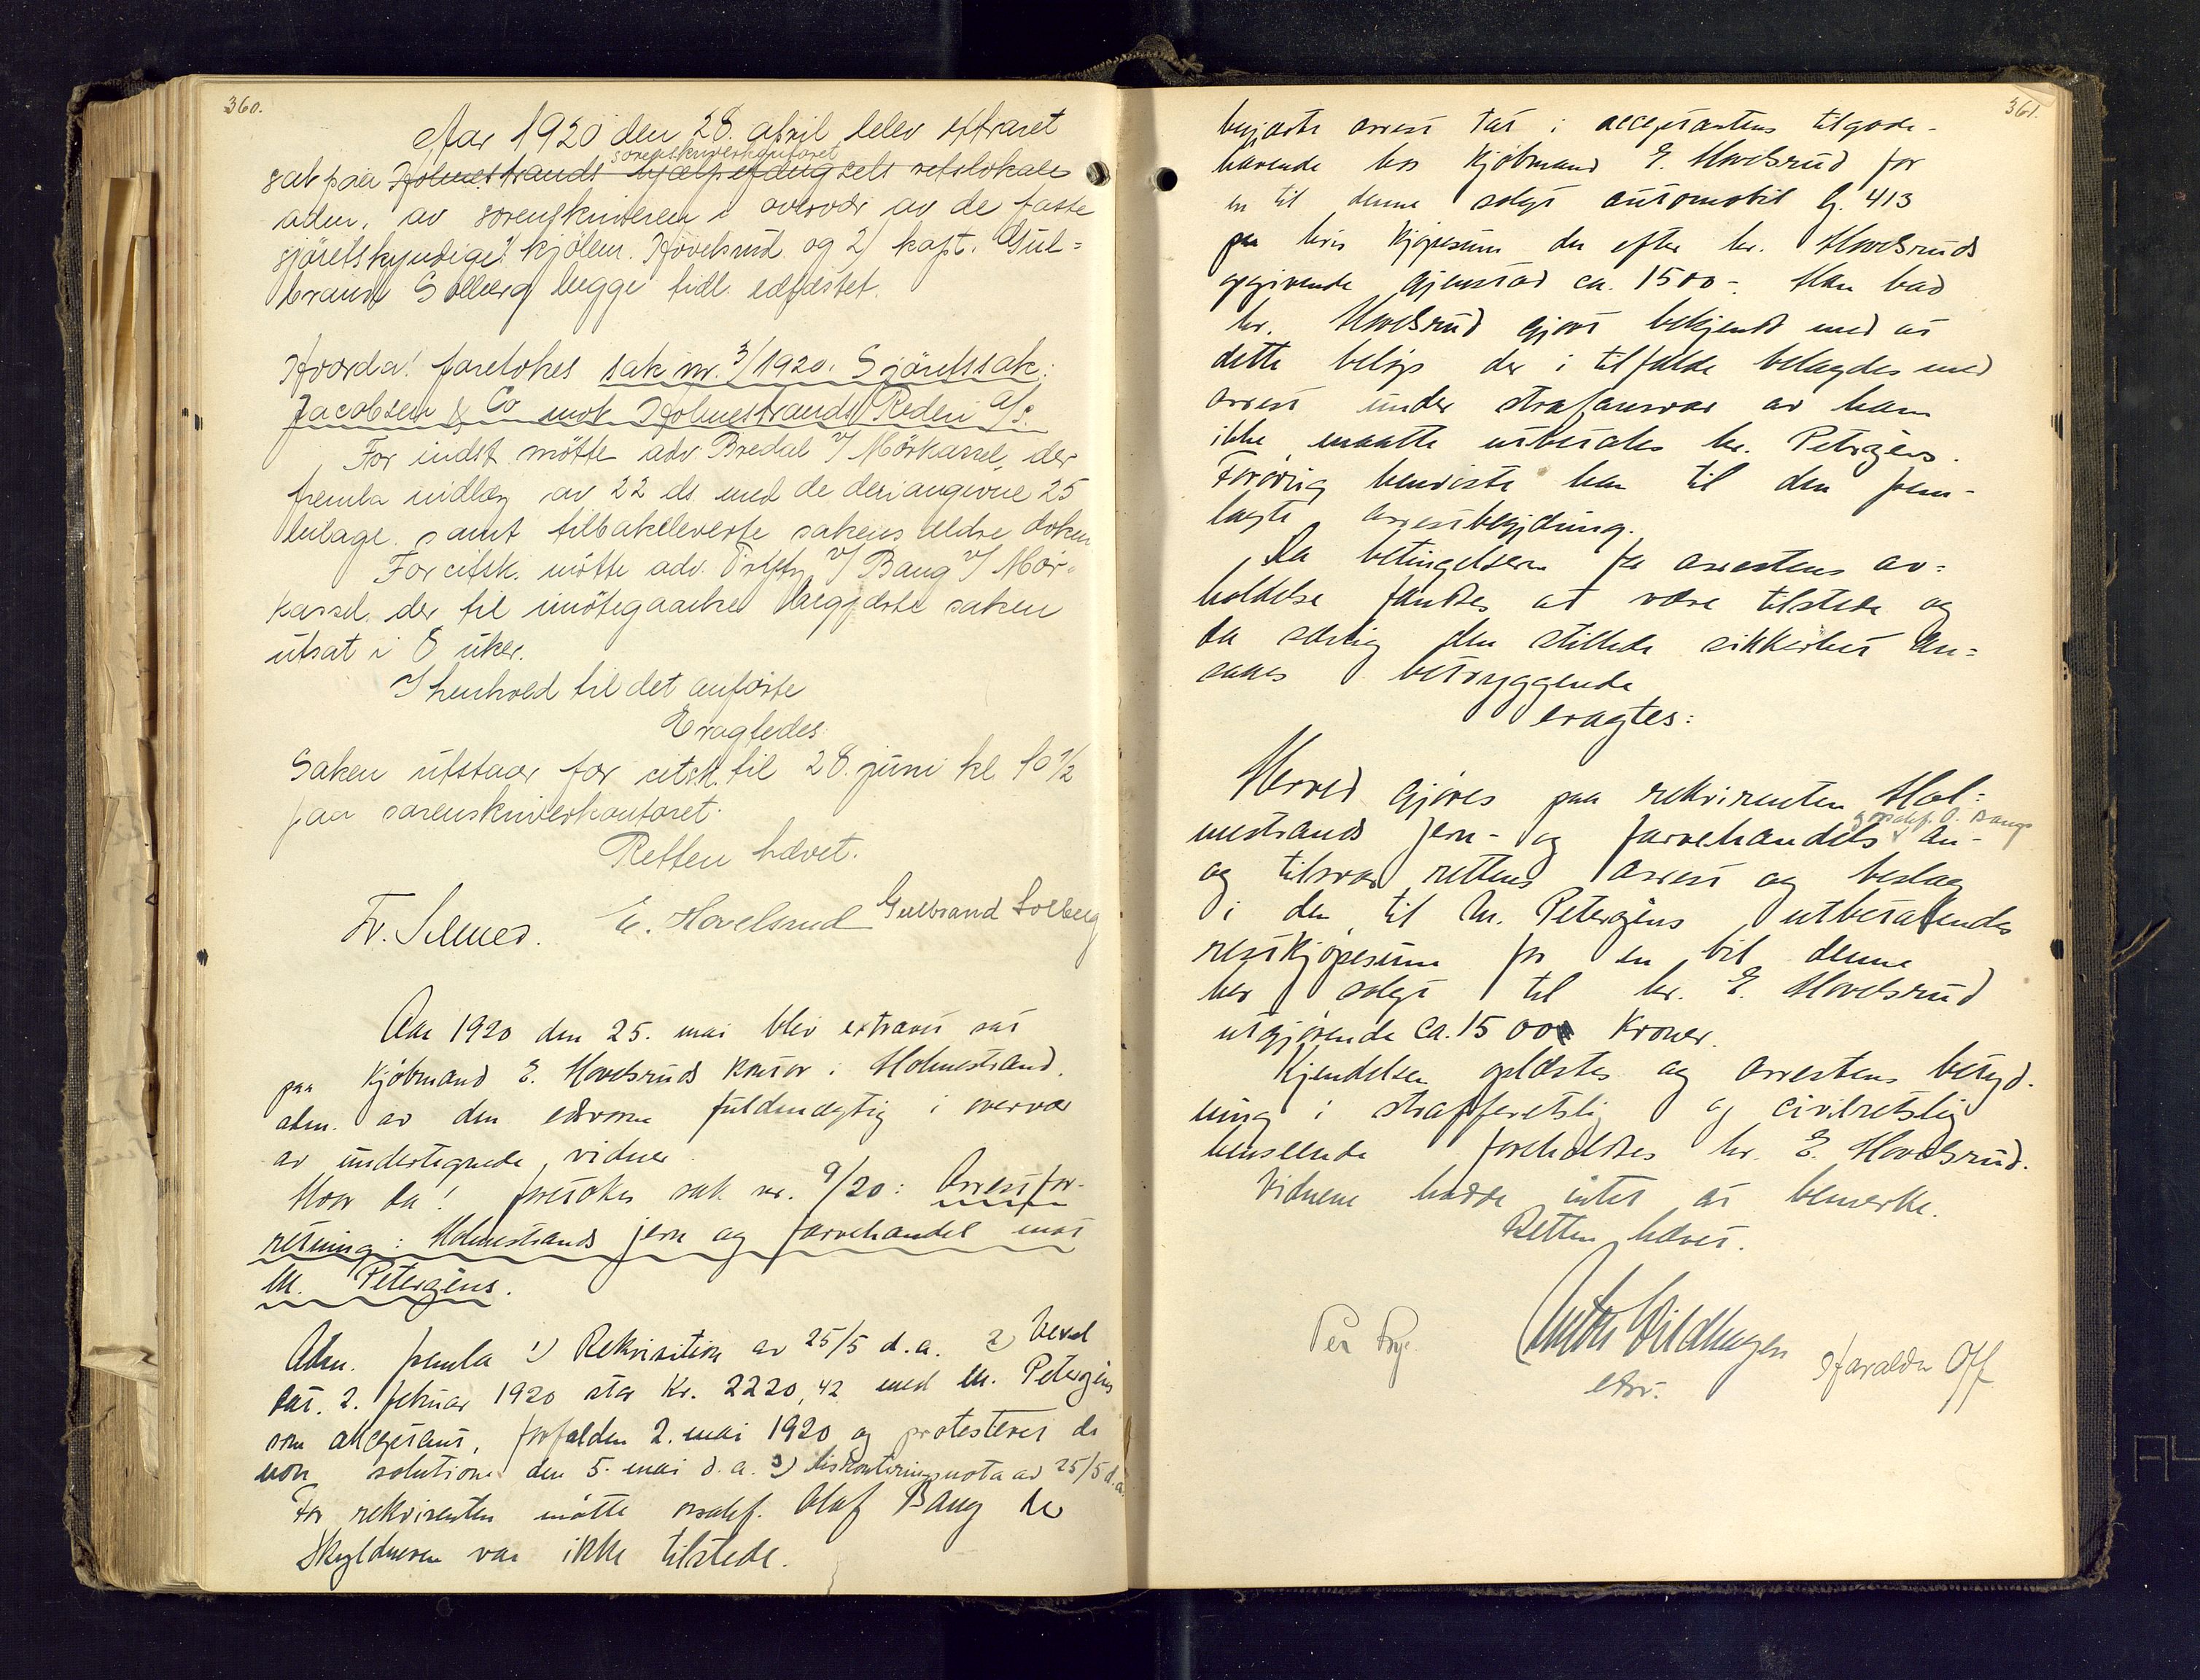 360.
Aar 1920 den 28. april blev extraret
sorenskriverkontoret
sat paa Holmestrands hjælpefængsels retslokale
adm. av sorenskriveren i overvær av de faste
sjöretskyndige: 1) kjöbm. Hövelsrud og 2) kapt. Gul=
brand Solberg begge tidl. edfæstet.
Hvorda! foretokes sak nr. 3/1920. Sjöretssak:
Jacobsen & Co mot Holmestrands Rederi A/S.
For indst. mötte adv. Bredal v/ Mörkassel, der
fremla indlæg av 22 ds. med de deri angivne 25
bilage. samt tilbakeleverte sakens ældre dokum
For citsk. mötte adv. v/ Bang v/ Mör-
kassel, der til imötegaaelse begjærte saken
utsat i 8 uker.
I henhold til det anförte
Eragtedes:
Saken utstaar for citsk. til 28. juni kl 10 1/2
paa sorenskriverkontoret.
Retten hævet.
Fr. Selmer. E. Hovelsrud Gulbrand Solberg
Aar 1920 den 25. mai blev extraret sat
paa kjöbmand E. Hovelsruds kontor i Holmestrand.
adm. av den edsvorne fuldmægtig i overvær
av undertegnede vidner.
Hvor da! foretokes sak nr. 9/20: Arrestfor-
retning: Holmestrands jern og farvehandel mot
M. Petersens.
Adm. fremla 1) Rekvisition av 25/5 d.a. 2) Vexel
dat. 2. februar 1920 stor Kr. 2220,42 med M. Petersens
som akceptant, forfalden 2. mai 1920 og protesteret de
non solutione den 5. mai d.a. 3) diskonteringsnota av 25/5 d.a.
For rekvirenten mötte orsakf. Olaf Bang
Skyldneren var ikke tilstede.
361.
begjærte arrest tat i acceptantens tilgode-
havende hos kjöbmand E. Hovelsrud for
en til denne solgt automobil G. 413
paa hvis kjöpesum der efter hr. Hovelsruds
opgivende gjenstod ca. 1500-. Man bad
hr. Hovelsrud gjort bekjendt med at
dette belöp der i tilfælde belagdes med
arrest under strafansvar av ham
ikke maatte utbetales hr. Petersens.
Forövrig henviste han til den frem-
lagte arrestbegjæring.
Da betingelserne for arrestens av-
holdelse fandtes at være tilstede og
da særlig den stillede sikkerhet an-
saaes betryggende
eragtes:
Herved gjöres paa rekvirenten Hol-
g orsakf. O. Bangs
mestrands jern- og farvehandels an-
og tilsvar rettens arrest og beslag
i den til M. Petersens utbetalendes
restkjöpesum for en bil denne
har solgt til hr. E. Hovelsrud
utgjörende ca. 1500 Kroner.
Kjendelsen oplæstes og arrestens betyd-
ning i strafferetslig og civilretslig
henseende foreholdtes hr. E. Hovelsrud.
Vidnene hadde intet at bemerke.
Retten hævet.
Per
Anton Vildhagen
edsv.
Haralda Off